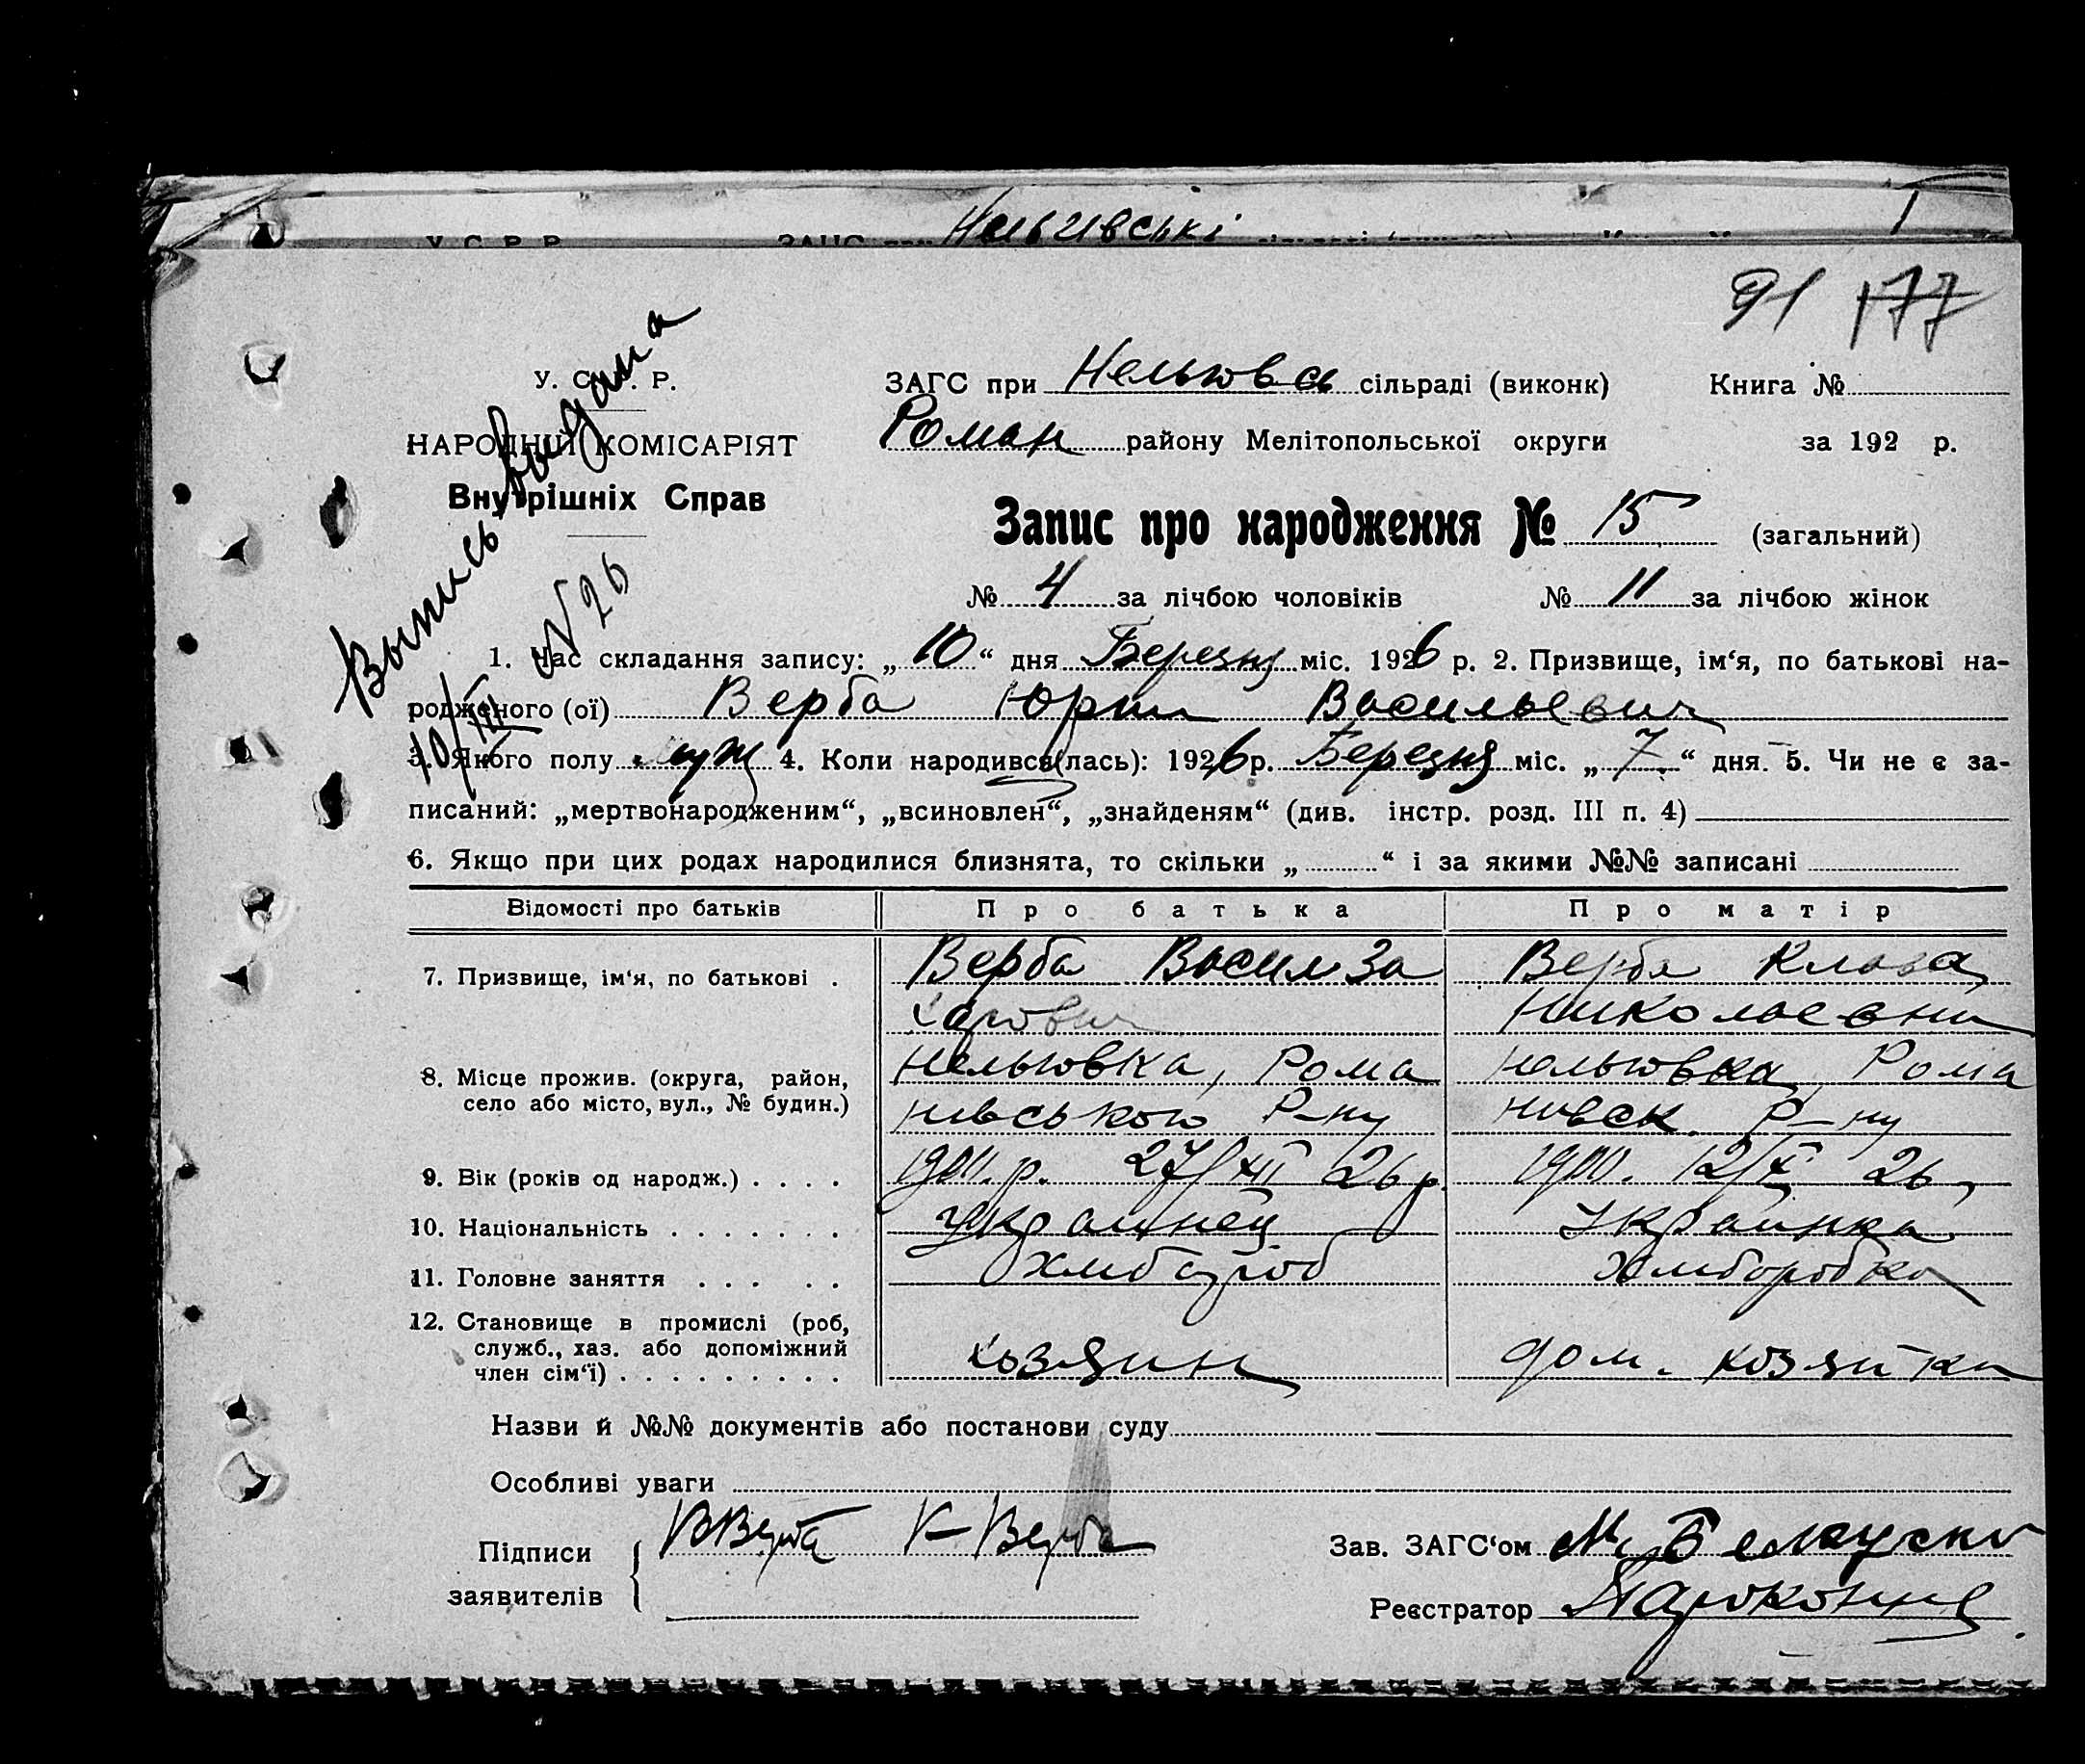 91 177
У. С. Р. Р. ЗАГС при Нельговсь сільраді (виконк) Книга №
НАРОДНІЙ КОМІСАРІЯТ Роман району Мелітопольської округи за 192 р.
Внутрішніх Справ
Выпись выдана
10/III № 26
Запис про народження № 15 (загальний)
№ 4 за лічбою чоловіків № 11 за лічбою жінок
1. Час складання запису: „10“ дня Березня міс. 1926 р. 2. Призвище, ім‘я, по батькові на-
родженого (ої) Верба Юрий Васильевич
3. Якого полу муж 4. Коли народився(лась): 1926 р. Березня міс. „7“ дня. 5. Чи не є за-
писаний: „мертвонародженим“, „всиновлен“, „знайденям“ (див. інстр. розд. III п. 4)
6. Якщо при цих родах народилися близнята, то скільки „ “ і за якими №№ записані
Відомості про батьків Про батька Про матір
7. Призвище, ім‘я, по батькові . Верба Васил За Верба Клава
харович Николаевна
8. Місце прожив. (округа, район, Нельговка, Рома Нельговка, Рома
село або місто, вул., № будин.) нівського Р-ну нівськ. Р-ну
9. Вік (років од народж.) . . . . 27/XII 26 р. 26
10. Національність . . . . . . . Украинец Украинка
11. Головне заняття . . . . . Хлибороб Хлиборобка
12. Становище в промислі (роб,
служб., хаз. або допоміжний хозяин дом. хозяйка
член сім‘ї) . . . . . . . . .
Назви й №№ документів або постанови суду
Особливі уваги
Підписи ВВерба К-Верба Зав. ЗАГС‘ом
заявителів Реєстратор